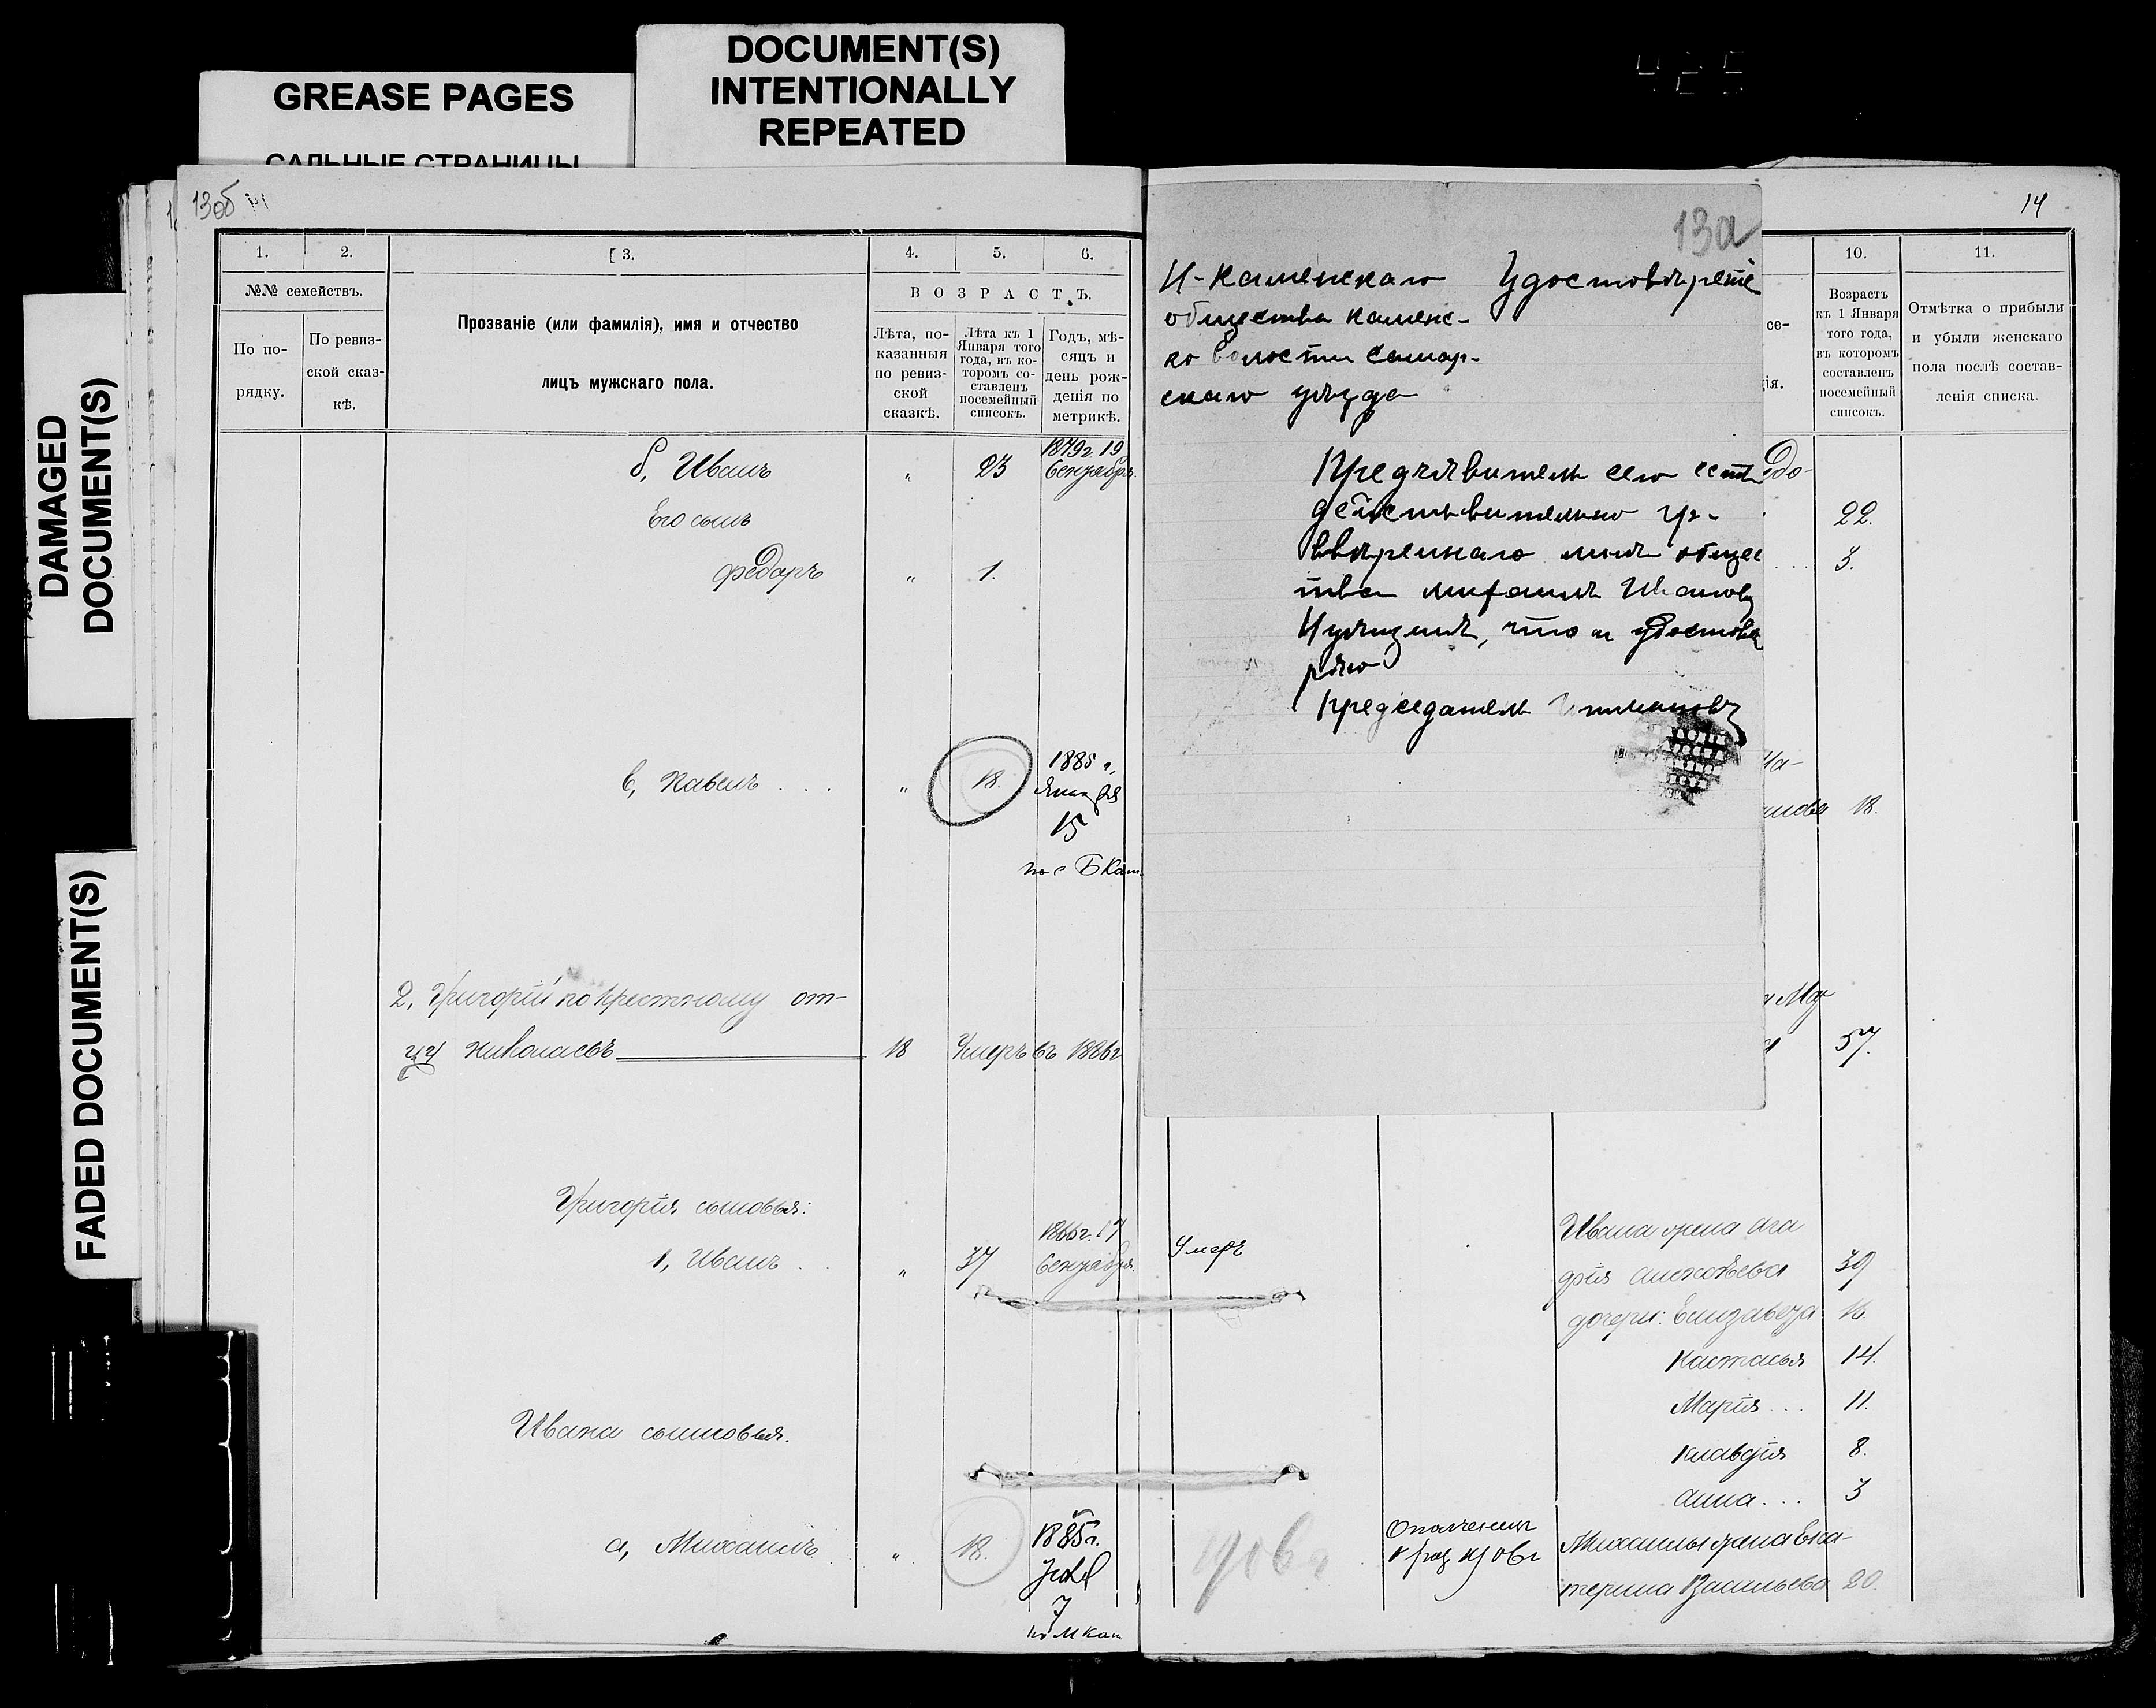 DOCUMENT(S)
INTENTIONALLY
REPEATED
GREASE PAGES
САЛЬНЫЕ СТРАНИЦЫ
DAMAGED
DOCUMENT(S)
FADED DOCUMENT(S)
13об
1.
2.
3.
4.
5.
6.
№№ семействъ.
Прозваніе (или фамилія), имя и отчество
лицъ мужскаго пола.
ВОЗРАСТЪ.
По по-
рядку.
По ревиз-
ской сказ-
кѣ.
Лѣта, по-
казанныя
по ревиз-
ской
сказкѣ.
Лѣта къ 1
Января того
года, въ ко-
торомъ со-
ставленъ
посемейный
списокъ.
Годъ, мѣ-
сяцъ и
день рож-
денія по
метрикѣ.
б, Иванъ " 23 1879г. 19 Сентября.
Его сынъ
Федоръ " 1.
в, Павелъ . . . " 18. 1885 г. Января 15
по с Б Кам.
2, Григорій по крестному от-
цу Николаевъ 18 Умеръ въ 1886г
Григорія сыновья:
1, Иванъ . . " 37 1866г. 17 Сентября.
Ивана сыновья.
а, Михаилъ " 18. 1885г.
7
по М Кам
13а
Н-Каменскаго Удостовѣреніе
общества Каменс-
ко волости Самар-
скаго уѣзда
Предъявитель сего есть
действительно гр-
ввѣреннаго мнѣ общес
тва Ивановъ
что и удостовѣ
ряю
Председатель
14
10.
11.
се-
ія.
Возрастъ
къ 1 Января
того года,
въ которомъ
составленъ
посемейный
списокъ.
Отмѣтка о прибыли
и убыли женскаго
пола послѣ состав-
ленія списка.
22.
3.
18.
57.
Умеръ
Ивана жена Ага
фія Алексѣева 39
дочери: Елизавета 16.
Настасья 14.
Марія . . . 11.
Клавдія 8.
Анна . . . 3
1906г
Ополченецъ
Михаилы жена Ека-
терина Васильева 20.